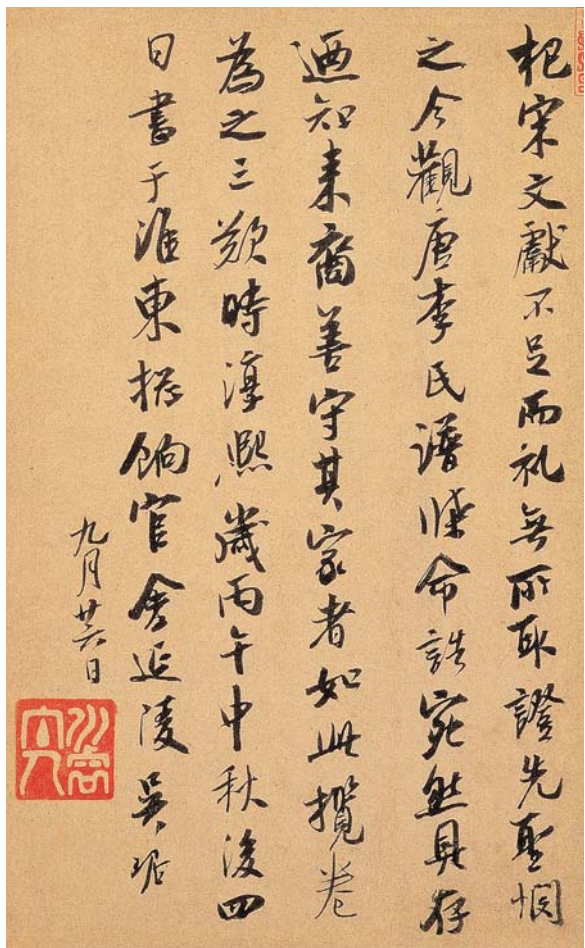 杞宋文獻不足而礼無所取證先聖憫
之今觀唐李氏譜牒命誥宛然具存
迺知来裔善守其家者如此攬卷
為之三歎時淳熙歲丙午中秋後四
日書于淮東揔餉官舍延陵吳琚
九月廿六日